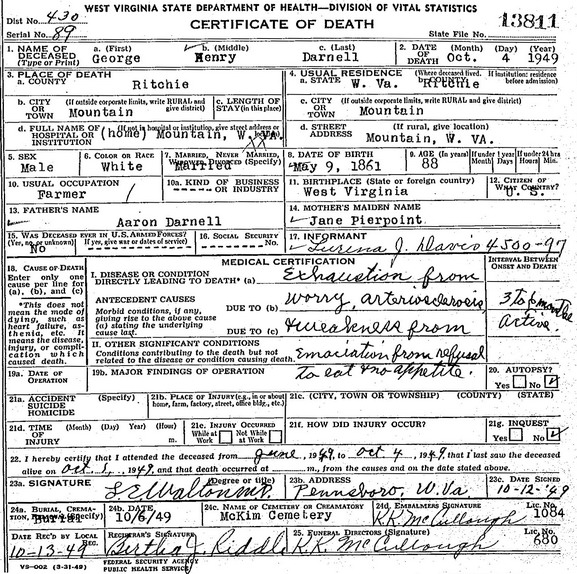 WEST VIRGINIA STATE DEPARTMENT OF HEALTH—DIVISION OF VITAL STATISTICS
CERTIFICATE OF DEATH
Dist No. 430
Serial No. 89
State File No. 13811
1. NAME OF DECEASED (Type or Print) a. (First) George b. (Middle) Henry c. (Last) Darnell
2. DATE OF DEATH (Month) Oct. (Day) 4 (Year) 1949
3. PLACE OF DEATH a. COUNTY Ritchie
4. USUAL RESIDENCE (Where deceased lived. If institution: residence before admission) a. STATE W. Va. COUNTY Ritchie
b. CITY OR TOWN (If outside corporate limits, write RURAL and give district) Mountain
c. LENGTH OF STAY (in this place)
c. CITY OR TOWN (If outside corporate limits, write RURAL and give district) Mountain
d. FULL NAME OF HOSPITAL OR INSTITUTION (If not in hospital or institution, give street address or) (home) Mountain, W. VA.
d. STREET ADDRESS (If rural, give location) Mountain, W. VA.
5. SEX Male
6. COLOR OR RACE White
7. MARRIED, NEVER MARRIED, WIDOWED, DIVORCED (Specify) Married
8. DATE OF BIRTH May 9, 1861
9. AGE (In Years) 88 If under 1 year Months Days If under 24 hrs Hours Min.
10. USUAL OCCUPATION Farmer
10a. KIND OF BUSINESS OR INDUSTRY
11. BIRTHPLACE (State or foreign country) West Virginia
12. CITIZEN OF WHAT COUNTRY? U. S.
13. FATHER'S NAME Aaron Darnell
14. MOTHER'S MAIDEN NAME Jane Pierpoint
15. WAS DECEASED EVER IN U.S. ARMED FORCES? (Yes, no, or unknown) If yes, give war or dates of service) No
16. SOCIAL SECURITY No.
17. INFORMANT J. Davis 4500-97
MEDICAL CERTIFICATION
INTERVAL BETWEEN ONSET AND DEATH
18. CAUSE OF DEATH
Enter only one cause per line for (a), (b), and (c)
*This does not mean the mode of dying, such as heart failure, asthenia, etc. It means the disease, injury, or complication which caused death.
I. DISEASE OR CONDITION DIRECTLY LEADING TO DEATH* (a) Exhaustion from
ANTECEDENT CAUSES
Morbid conditions, if any, giving rise to the above cause (a) stating the underlying cause last.
DUE TO (b) worry, arteriosclerosis
3 to 6 months active.
DUE TO (c) & weakness from
II. OTHER SIGNIFICANT CONDITIONS
Conditions contributing to the death but not related to the disease or condition causing death.
Emaciation from refusal
to eat & no appetite.
19a. DATE OF OPERATION
19b. MAJOR FINDINGS OF OPERATION
20. AUTOPSY? Yes No
21a. ACCIDENT SUICIDE HOMICIDE (Specify)
21b. PLACE OF INJURY (e.g., in or about home, farm, factory, street, office bldg., etc.)
21c. (CITY, TOWN OR TOWNSHIP) (COUNTY) (STATE)
21d. TIME OF INJURY (Month) (Day) (Year) (Hour) m.
21e. INJURY OCCURRED While at Work Not While at Work
21f. HOW DID INJURY OCCUR?
21g. INQUEST Yes No
22. I hereby certify that I attended the deceased from June, 1949, to Oct 4, 1949, that I last saw the deceased
alive on Oct 1, 1949, and that death occurred at m., from the causes and on the date stated above.
23a. SIGNATURE (Degree or title)
23b. ADDRESS Pennsboro, W. Va
23c. DATE SIGNED 10-12-49
24a. BURIAL, CREMATION, REMOVAL (Specify) Burial
24b. DATE 10/6/49
24c. NAME OF CEMETERY OR CREMATORY McKim Cemetery
24d. EMBALMERS SIGNATURE R.R. McCullough LIC. NO. 1084
DATE REC'D BY LOCAL REG. 10-13-49
REGISTRAR'S SIGNATURE Bertha J. Riddle
25. FUNERAL DIRECTORS (Signature) R.R. McCullough LIC. NO. 680
VS-002 (3-31-49)
FEDERAL SECURITY AGENCY
PUBLIC HEALTH SERVICE